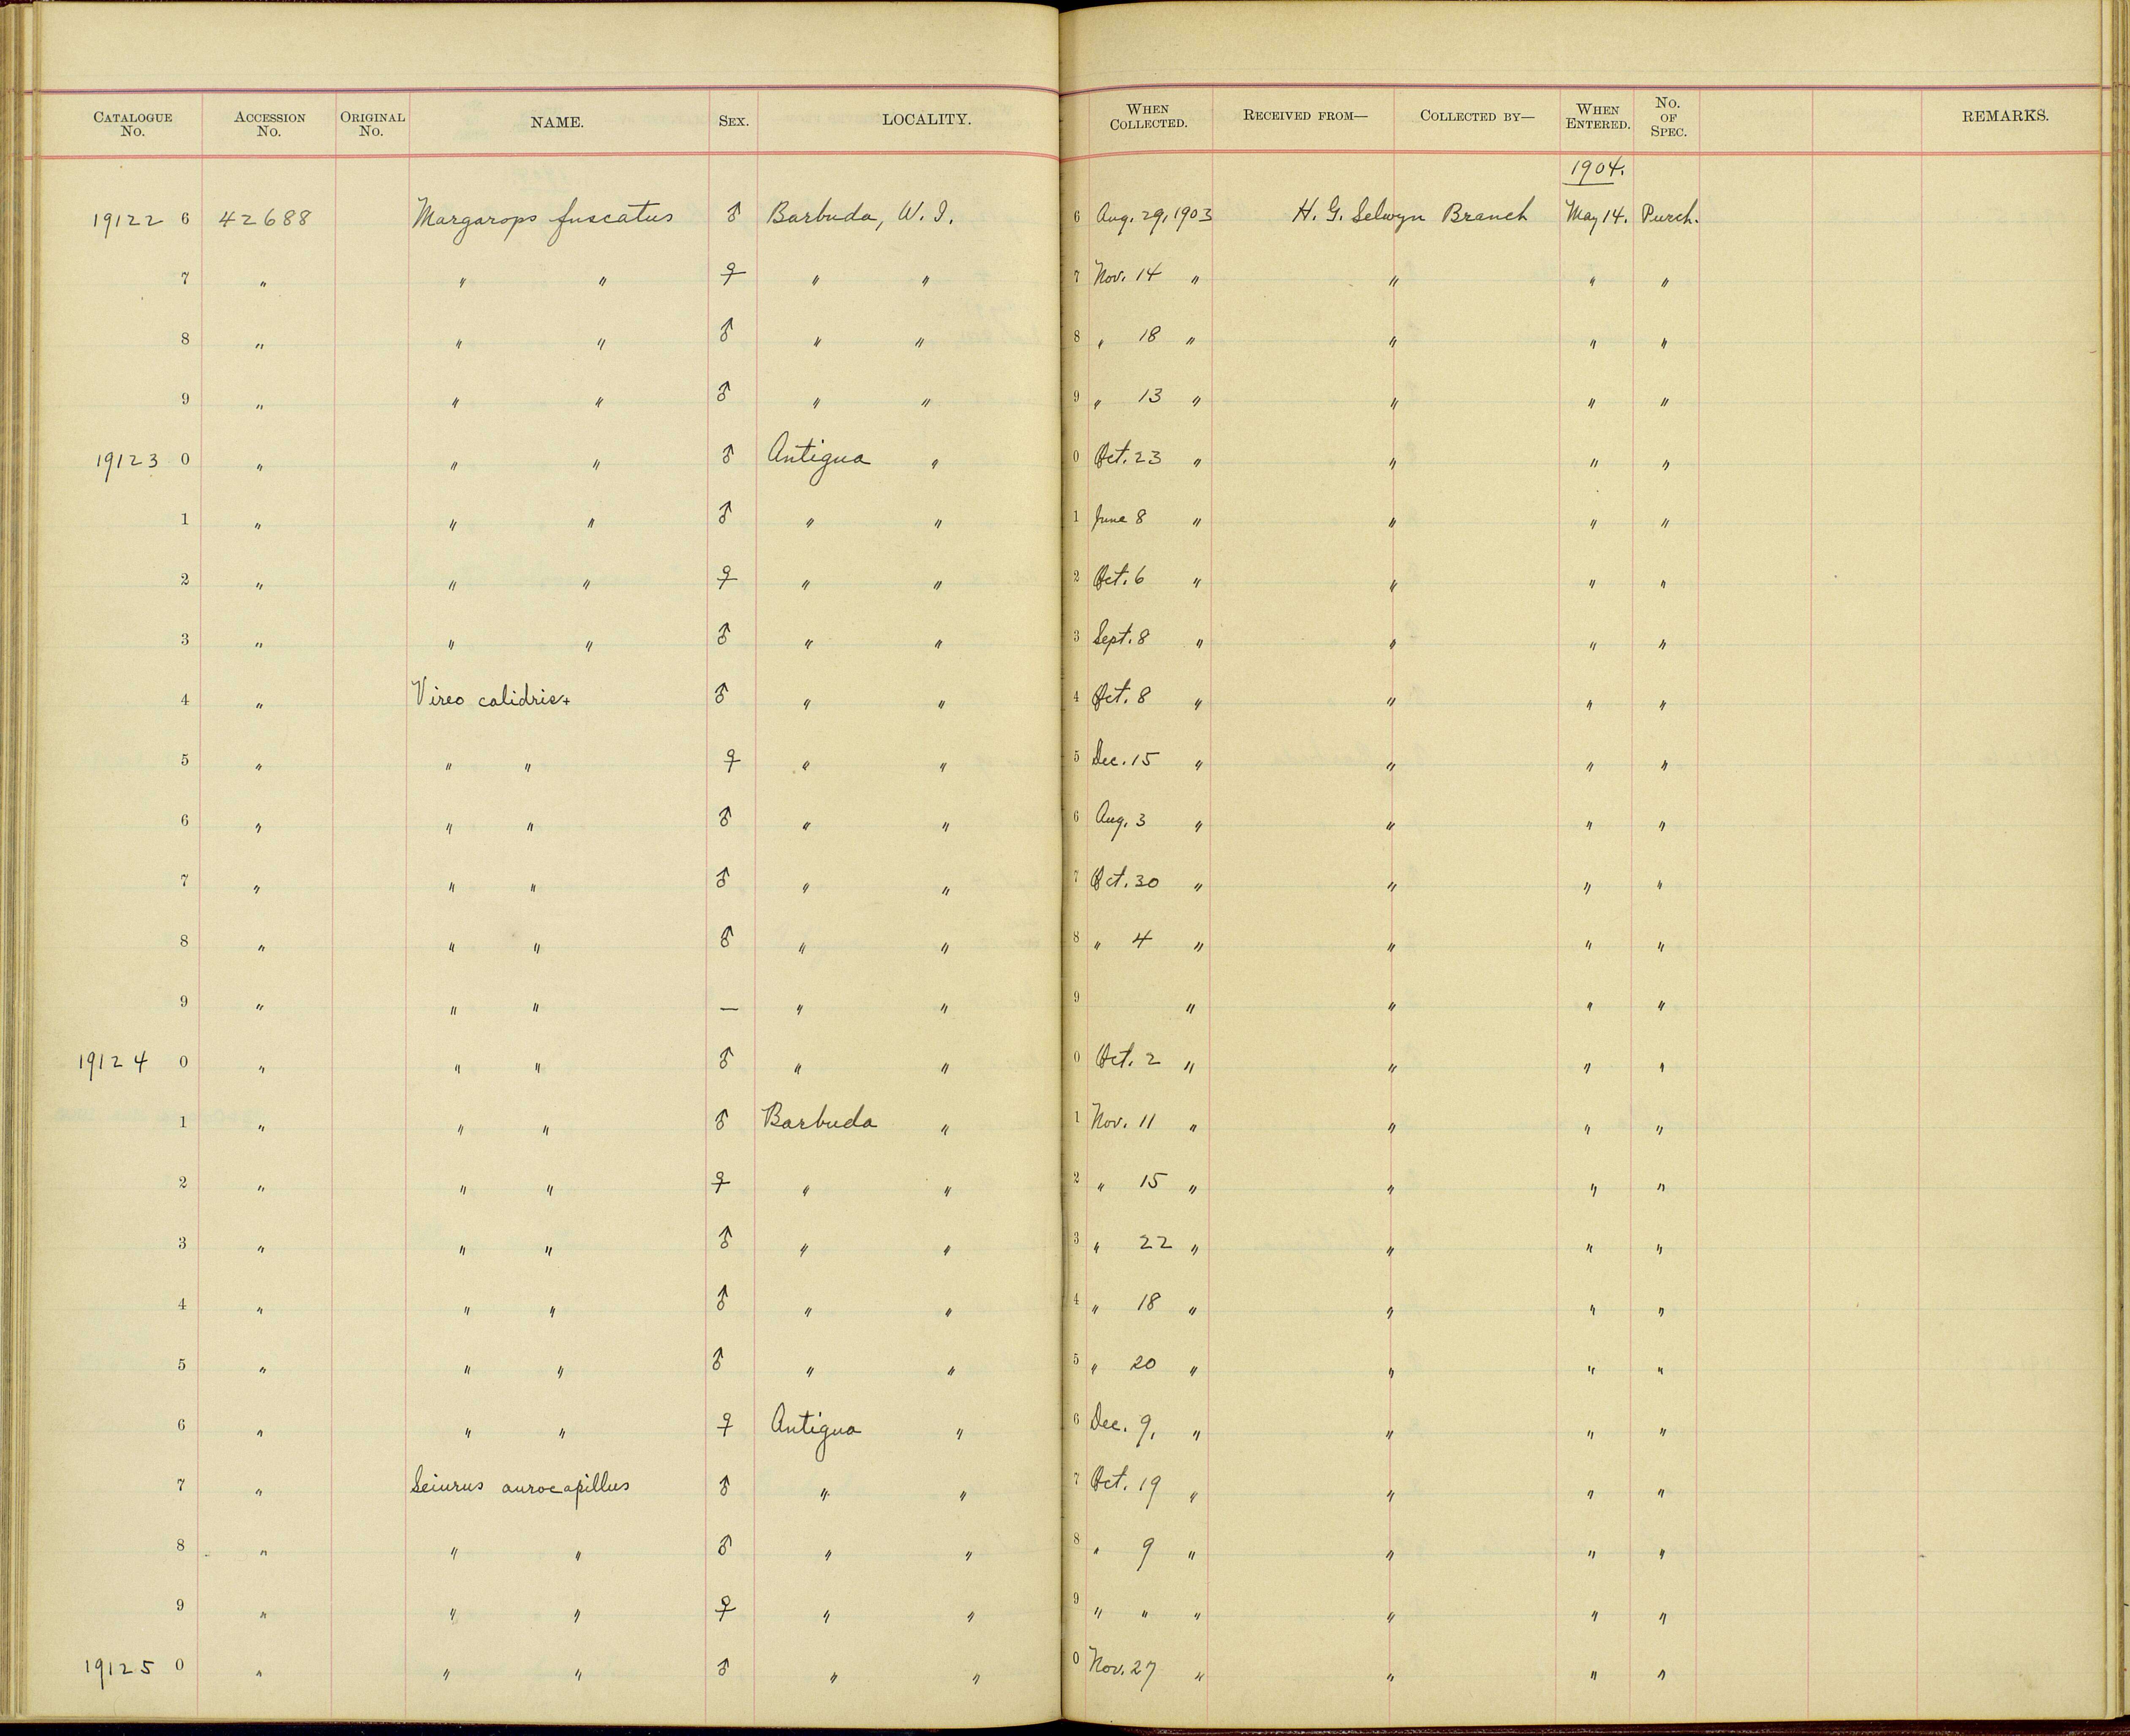 CATALOGUE No. ACCESSION No. ORIGINAL No. NAME. SEX. LOCALITY. WHEN COLLECTED. RECEIVED FROM— COLLECTED BY— WHEN ENTERED. No. OF SPEC. REMARKS.
1904.
19122 6 42688 Margarops fuscatus ♂ Barbuda, W. I. 6 Aug. 29, 1903 H. G. Selwyn Branch May 14. Purch.
7 " " " ♀ " " 7 Nov. 14 " " " "
8 " " " ♂ " " 8 " 18 " " " "
9 " " " ♂ " " 9 " 13 " " " "
19123 0 " " " ♂ Antigua " 0 Oct. 23 " " " "
1 " " " ♂ " " 1 June 8 " " " "
2 " " " ♀ " " 2 Oct. 6 " " " "
3 " " " ♂ " " 3 Sept. 8 " " " "
4 " Vireo calidris+ ♂ " " 4 Oct. 8 " " " "
5 " " " ♀ " " 5 Dec. 15 " " " "
6 " " " ♂ " " 6 Aug. 3 " " " "
7 " " " ♂ " " 7 Oct. 30 " " " "
8 " " " ♂ " " 8 " 4 " " " "
9 " " " — " " 9 " " " "
19124 0 " " " ♂ " " 0 Oct. 2 " " " "
1 " " " ♂ Barbuda " 1 Nov. 11 " " " "
2 " " " ♀ " " 2 " 15 " " " "
3 " " " ♂ " " 3 " 22 " " " "
4 " " " ♂ " " 4 " 18 " " " "
5 " " " ♂ " " 5 " 20 " " " "
6 " " " ♀ Antigua " 6 Dec. 9, " " " "
7 " Seiurus aurocapillus ♂ " " 7 Oct. 19 " " " "
8 " " " ♂ " " 8 " 9 " " " "
9 " " " ♀ " " 9 " " " " " "
19125 0 " " " ♂ " " 0 Nov. 27 " " " "